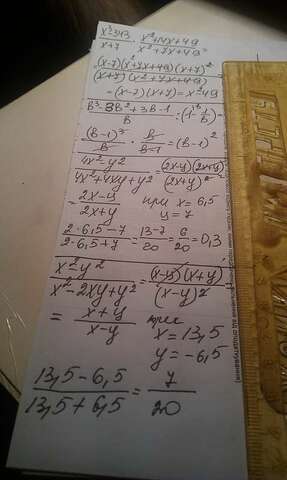 x³-343 / x+7 · x²+14x+49 / x²+7x+49 =
= (x-7)(x²+7x+49)(x+7)² / (x+7)(x²+7x+49) =
= (x-7)(x+7) = x²-49
b³-3b²+3b-1 / b : (1 - 1/b) =
(b-1)³ / b · b / b-1 = (b-1)²
4x²-y² / 4x²+4xy+y² = (2x-y)(2x+y) / (2x+y)²
= 2x-y / 2x+y при x = 6,5
y = 7
2·6,5-7 / 2·6,5+7 = 13-7 / 20 = 6 / 20 = 0,3
x²-y² / x²-2xy+y² = (x-y)(x+y) / (x-y)²
= x+y / x-y при
x = 13,5
y = -6,5
13,5-6,5 / 13,5+6,5 = 7 / 20